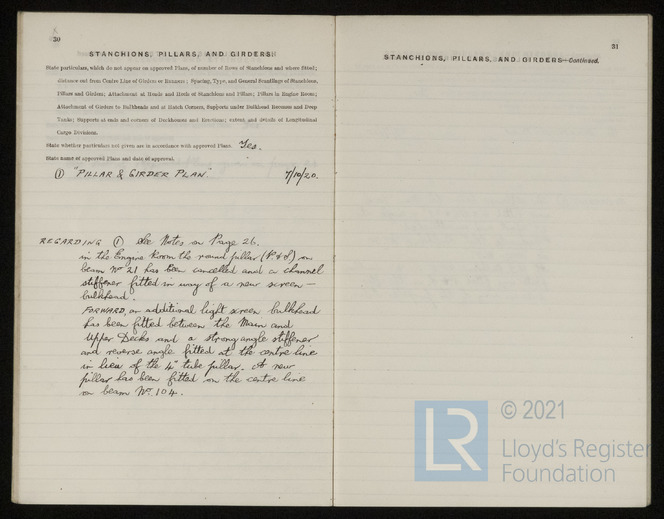 30
STANCHIONS, PILLARS, AND GIRDERS.
State particulars, which do not appear on approved Plans, of number of Rows of Stanchions and where fitted;
distance out from Centre Line of Girders or Runners; Spacing, Type, and General Scantlings of Stanchions,
Pillars and Girders; Attachment at Heads and Heels of Stanchions and Pillars; Pillars in Engine Room;
Attachment of Girders to Bulkheads and at Hatch Corners, Supports under Bulkhead Recesses and Deep
Tanks; Supports at ends and corners of Deckhouses and Erections; extent and details of Longitudinal
Cargo Divisions.
State whether particulars not given are in accordance with approved Plans. Yes.
State name of approved Plans and date of approval.
① "PILLAR & GIRDER PLAN." 7/10/20.
REGARDING ① See Notes on Page 26.
in the Engine Room the round pillar (P&S) on
beam No 21 has been cancelled and a channel
stiffener fitted in way of a new screen-
bulkhead.
FORWARD, an additional light screen bulkhead
has been fitted between the Main and
Upper Decks and a strong angle stiffener
and reverse angle fitted at the centre line
in lieu of the 4" tube pillar. A new
pillar has been fitted on the centre line
on beam No. 104.
31
STANCHIONS, PILLARS, AND GIRDERS—Continued.
LR
© 2021
Lloyd's Register
Foundation